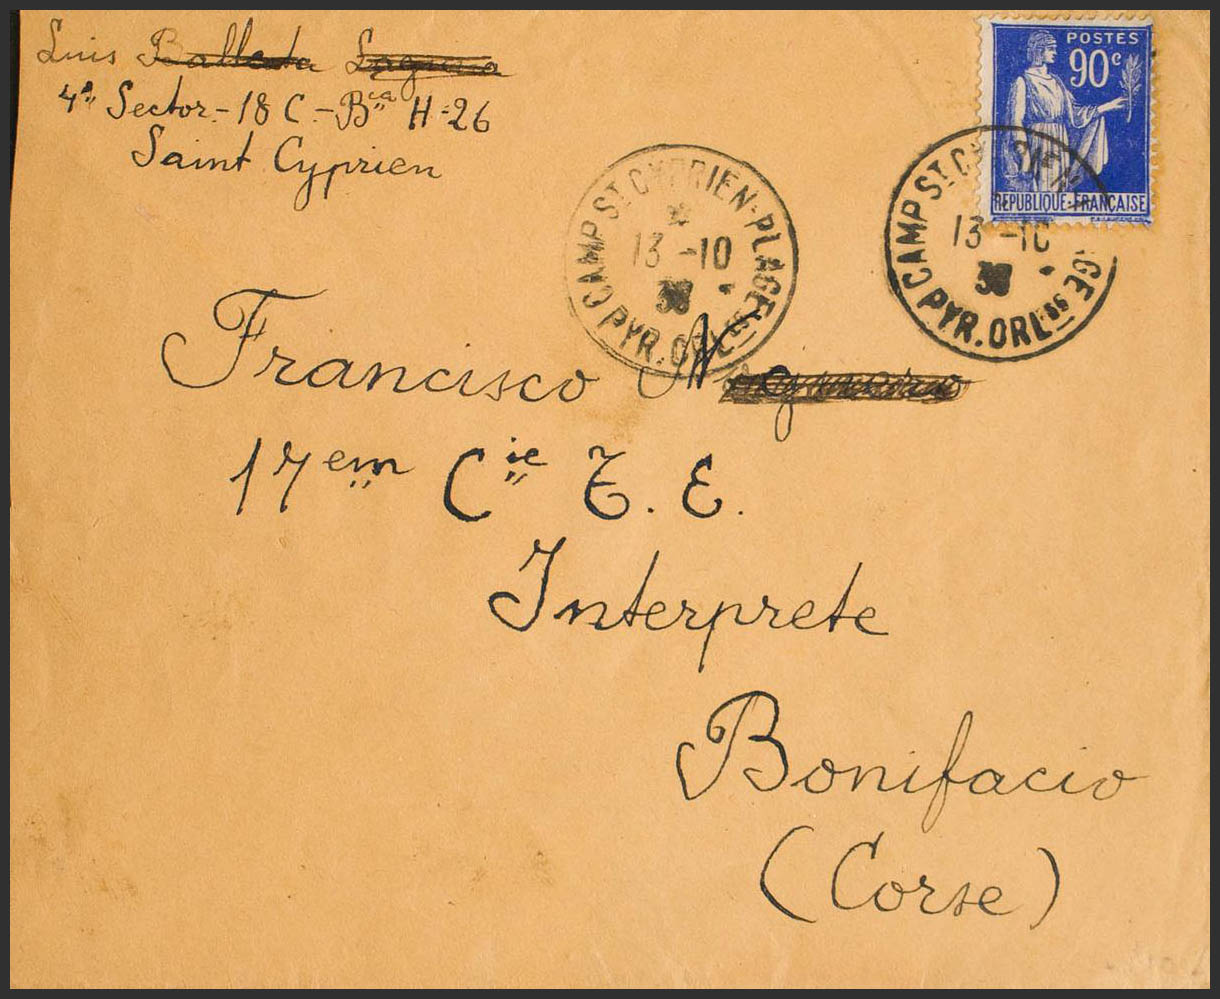 Luis
4ª Sector - 18 C. - Bca H-26
Saint Cyprien
POSTES
90c
REPUBLIQUE-FRANÇAISE
CAMP ST CYPRIEN-PLAGE
13 -10
PYR. ORLES
CAMP ST CYPRIEN
13 -10
PYR. ORLES
Francisco
17em Cie T. E.
Interprete
Bonifacio
(Corse)